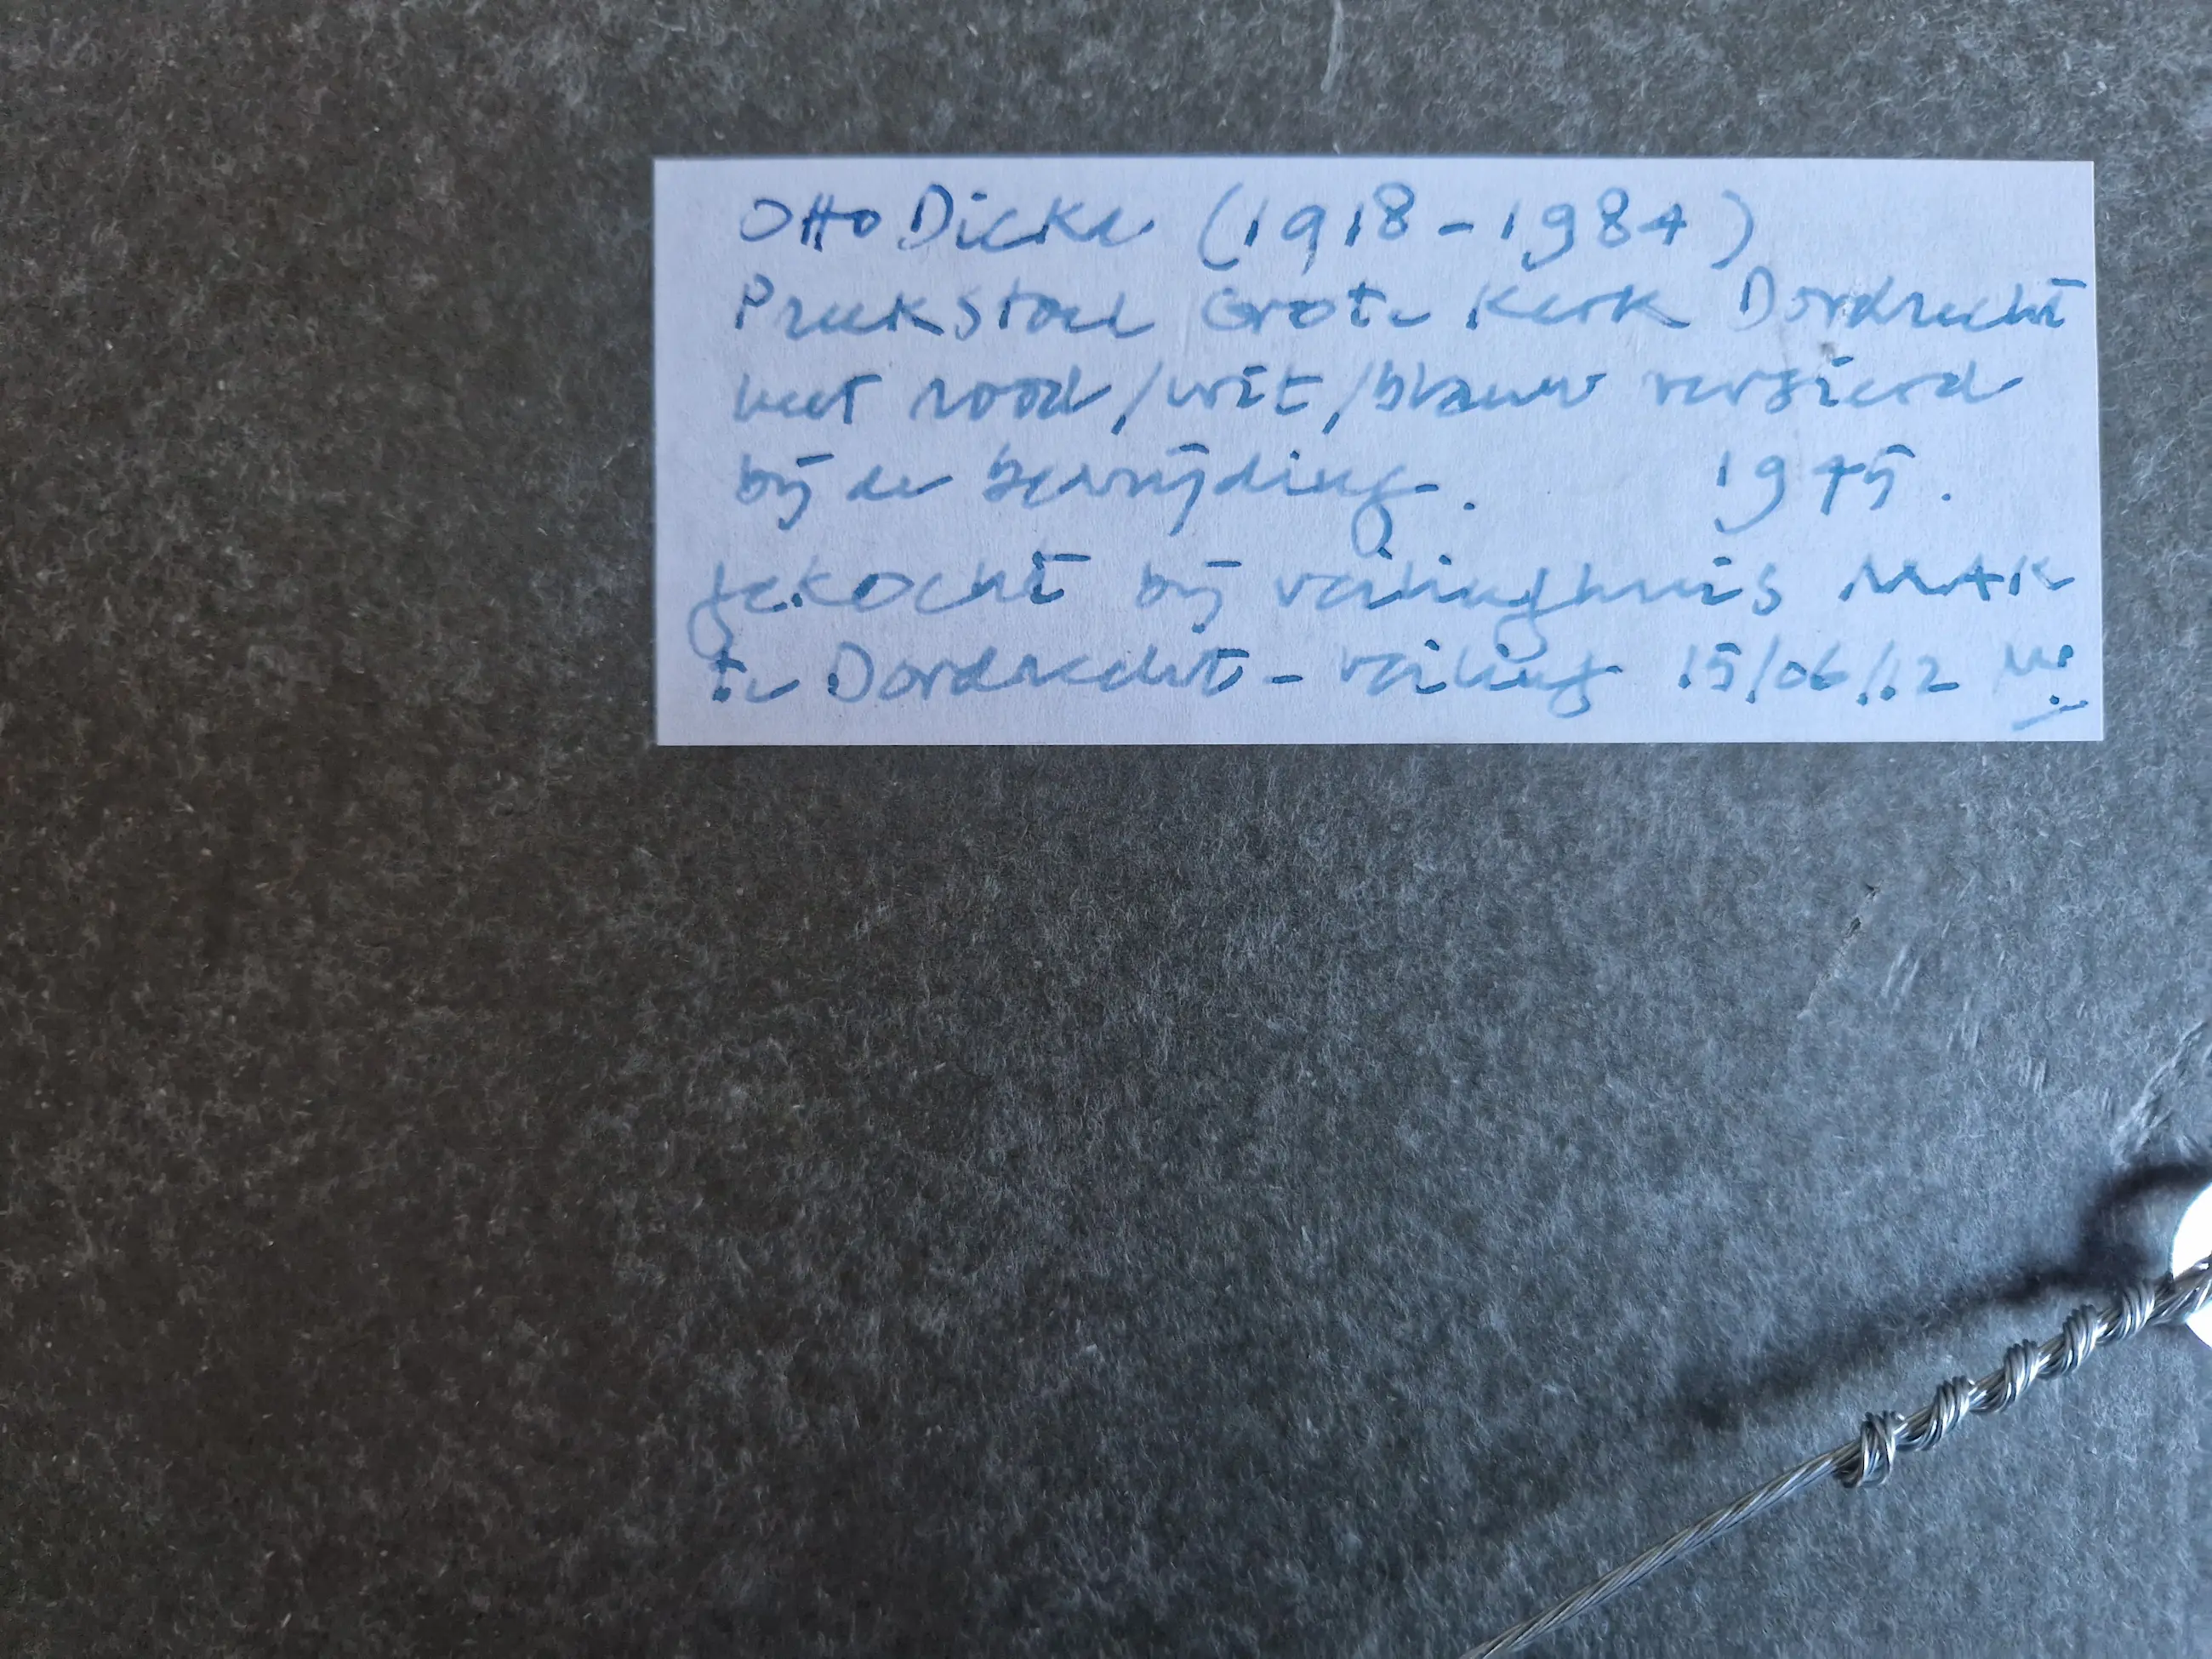 Otto Dicke (1918-1984)
Preekstoel Grote Kerk Dordrecht
met rood/wit/blauw versierd
bij de bevrijding. 1945.
gekocht bij veilinghuis MAK
te Dordrecht - veiling 15/06/12